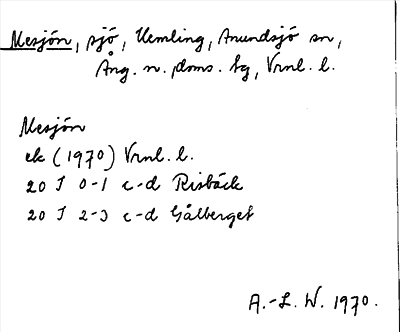 Mesjön, sjö, Kemling, Anundsjö sn,
Ång. n. doms. tg, Vrnl. l.
Mesjön
ek (1970) Vrnl. l.
20 I 0-1 c-d Risbäck
20 I 2-3 c-d Gålberget
A.-L. W. 1970.